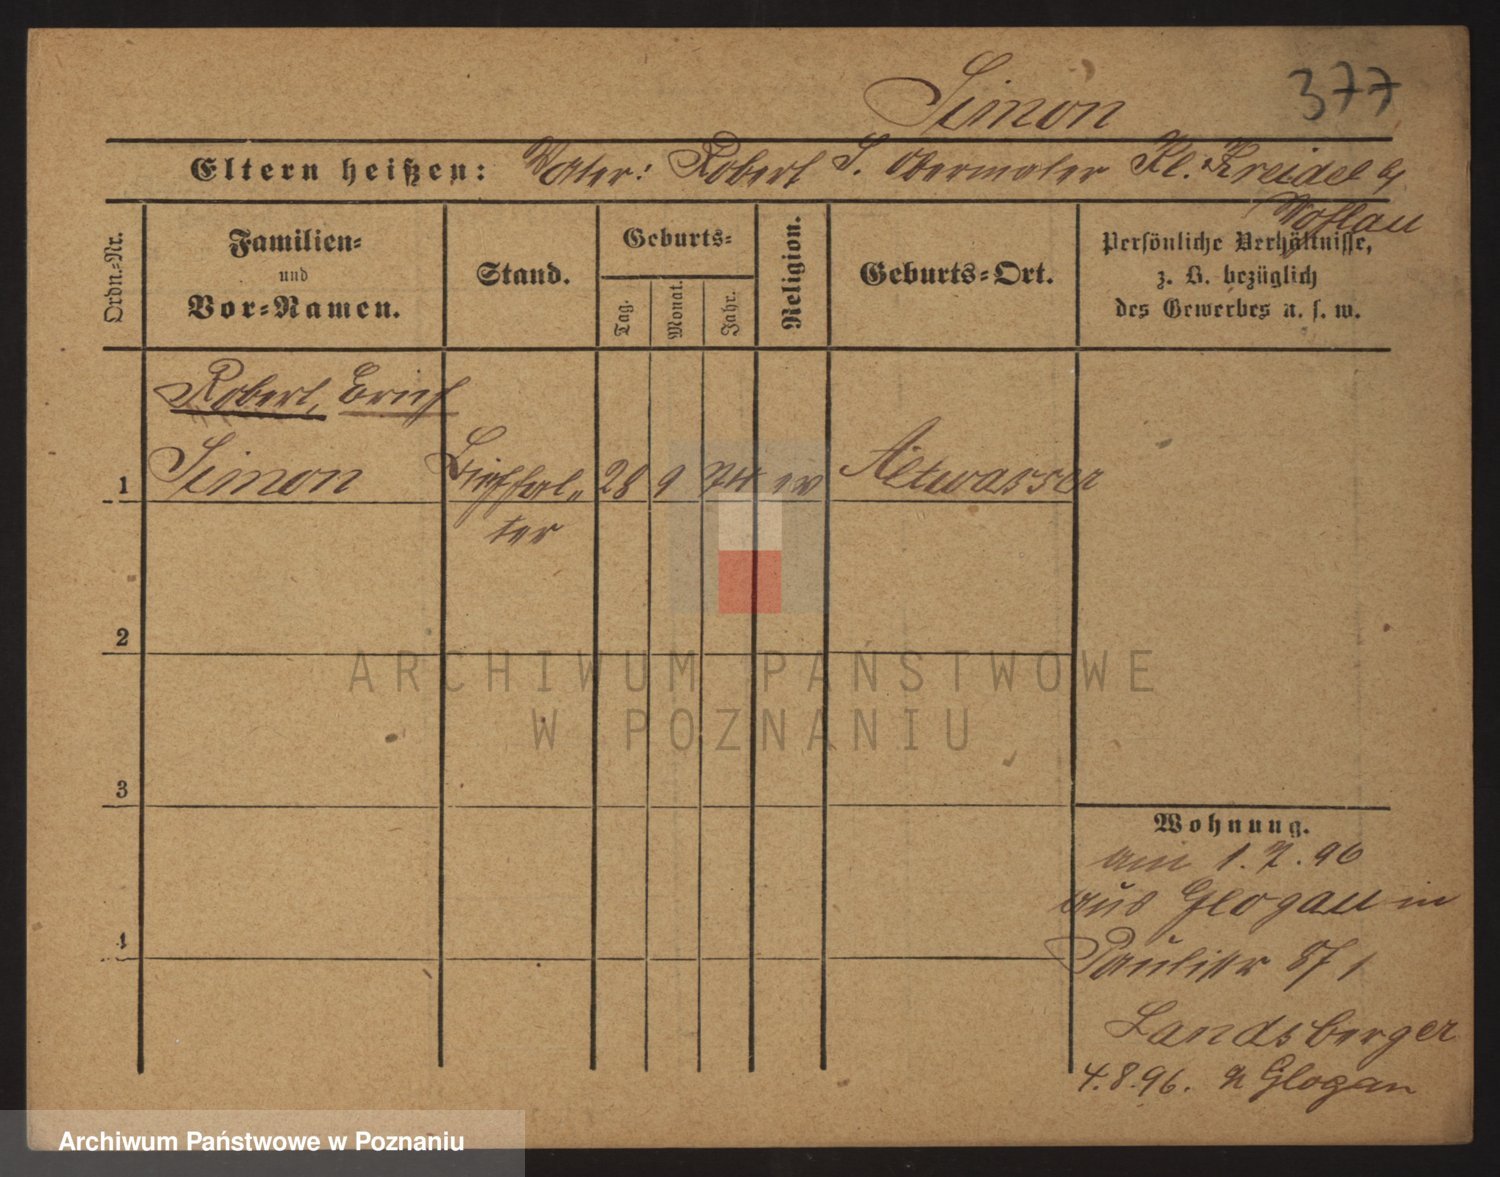 Simon
377
Eltern heißen: Vater: Robert S. Obermaler Kl. Kreidel b/
Wohlau
Ordn.-Nr.
Familien-
und
Vor-Namen.
Stand.
Geburts-
Tag.
Monat.
Jahr.
Religion.
Geburts-Ort.
Persönliche Verhältnisse,
z. B. bezüglich
des Gewerbes u. s. w.
Robert, Erich
1 Simon Buchhal„ 28 9 74 ev Altwasser
ter
2
3
4
Wohnung.
am 1.7.96
aus Glogau in
Paulistr 8
Landsberger
4.8.96. n Glogau
ARCHIWUM PAŃSTWOWE
W POZNANIU
Archiwum Państwowe w Poznaniu